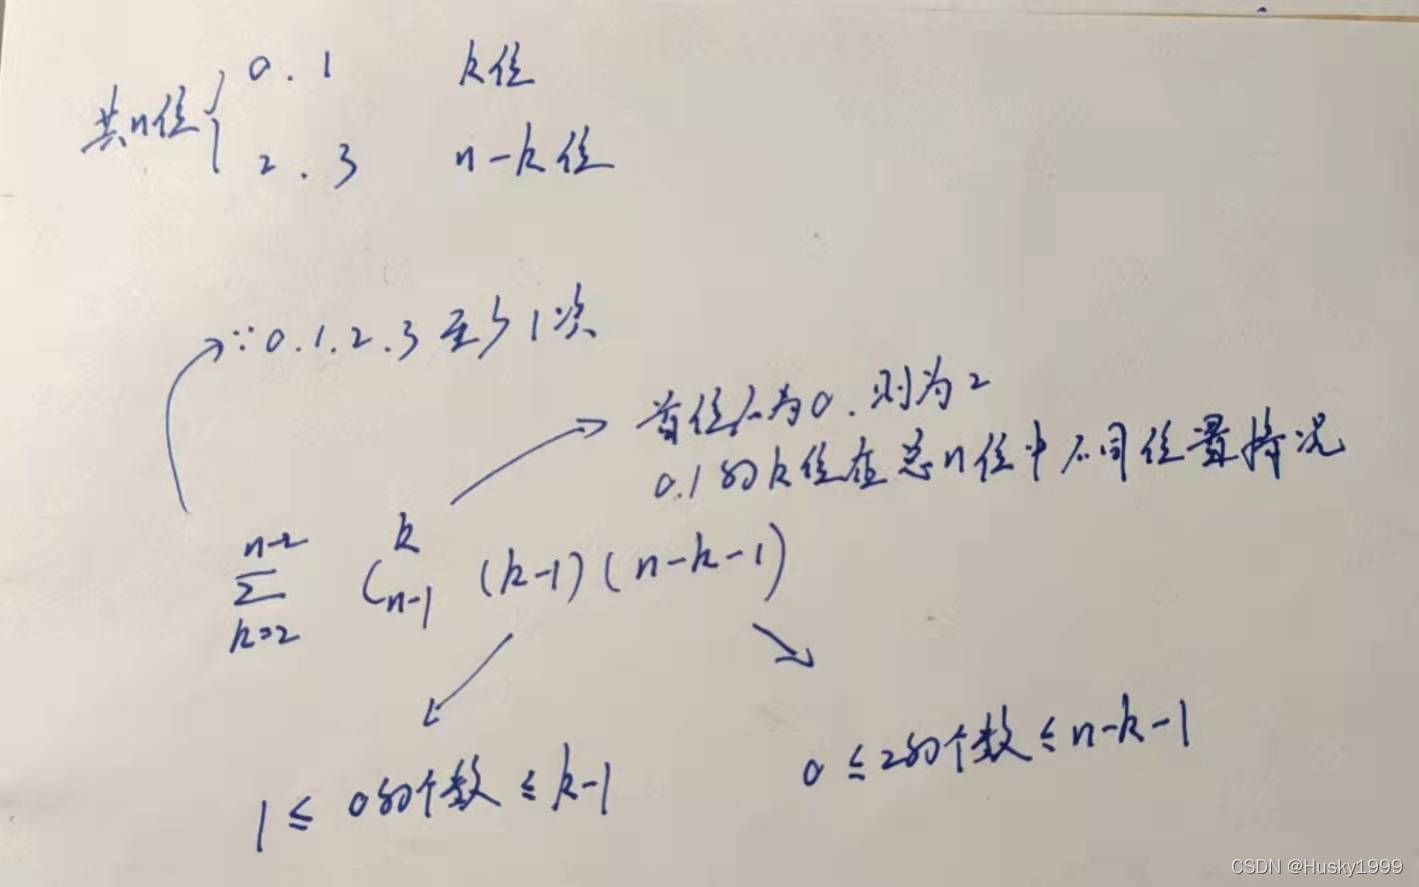 共n位{ 0.1 k位
2.3 n-k位
∵0.1.2.3至少1次
首位不为0.则为2
0.1的k位在总n位中不同位置情况
n-2
∑ C k n-1 (k-1)(n-k-1)
k=2
1≤0的个数≤k-1
0≤2的个数≤n-k-1
CSDN @Husky1999